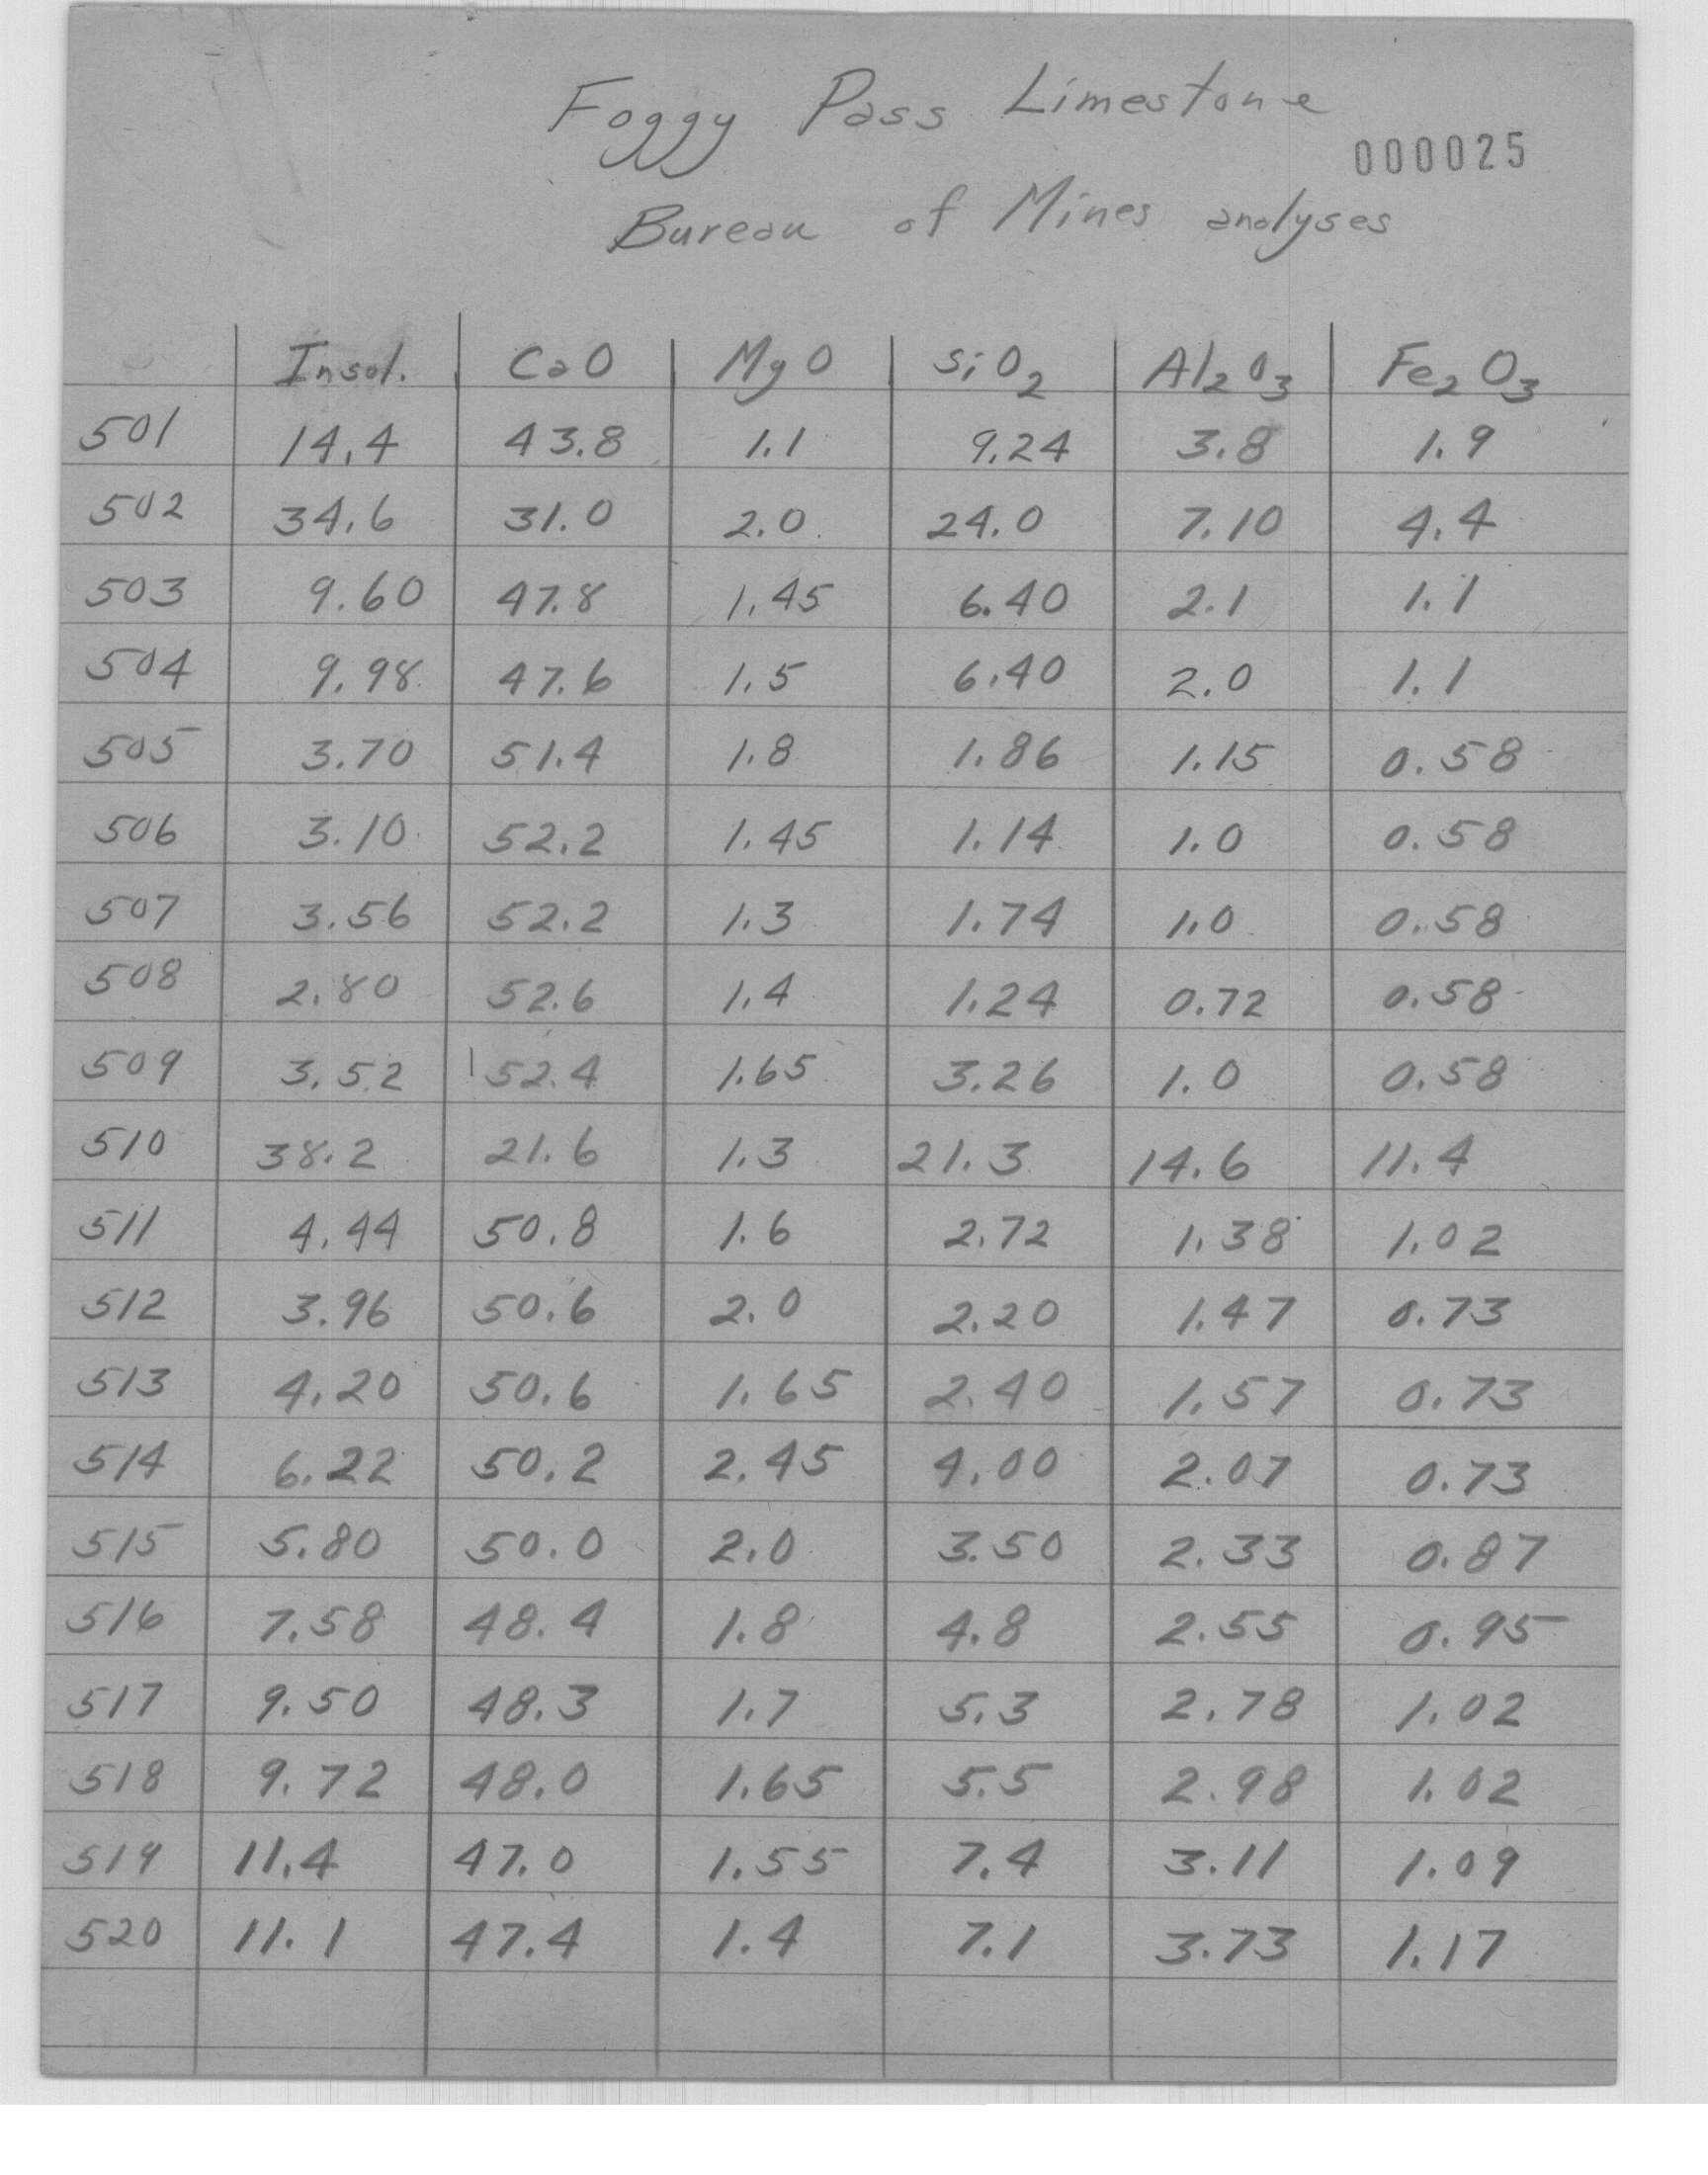 Foggy Pass Limestone
000025
Bureau of Mines analyses
Insol. CaO MgO SiO2 Al2O3 Fe2O3
501 14.4 43.8 1.1 9.24 3.8 1.9
502 34.6 31.0 2.0 24.0 7.10 4.4
503 9.60 47.8 1.45 6.40 2.1 1.1
504 9.98 47.6 1.5 6.40 2.0 1.1
505 3.70 51.4 1.8 1.86 1.15 0.58
506 3.10 52.2 1.45 1.14 1.0 0.58
507 3.56 52.2 1.3 1.74 1.0 0.58
508 2.80 52.6 1.4 1.24 0.72 0.58
509 3.52 52.4 1.65 3.26 1.0 0.58
510 38.2 21.6 1.3 21.3 14.6 11.4
511 4.44 50.8 1.6 2.72 1.38 1.02
512 3.96 50.6 2.0 2.20 1.47 0.73
513 4.20 50.6 1.65 2.40 1.57 0.73
514 6.22 50.2 2.45 4.00 2.07 0.73
515 5.80 50.0 2.0 3.50 2.33 0.87
516 7.58 48.4 1.8 4.8 2.55 0.95
517 9.50 48.3 1.7 5.3 2.78 1.02
518 9.72 48.0 1.65 5.5 2.98 1.02
519 11.4 47.0 1.55 7.4 3.11 1.09
520 11.1 47.4 1.4 7.1 3.73 1.17